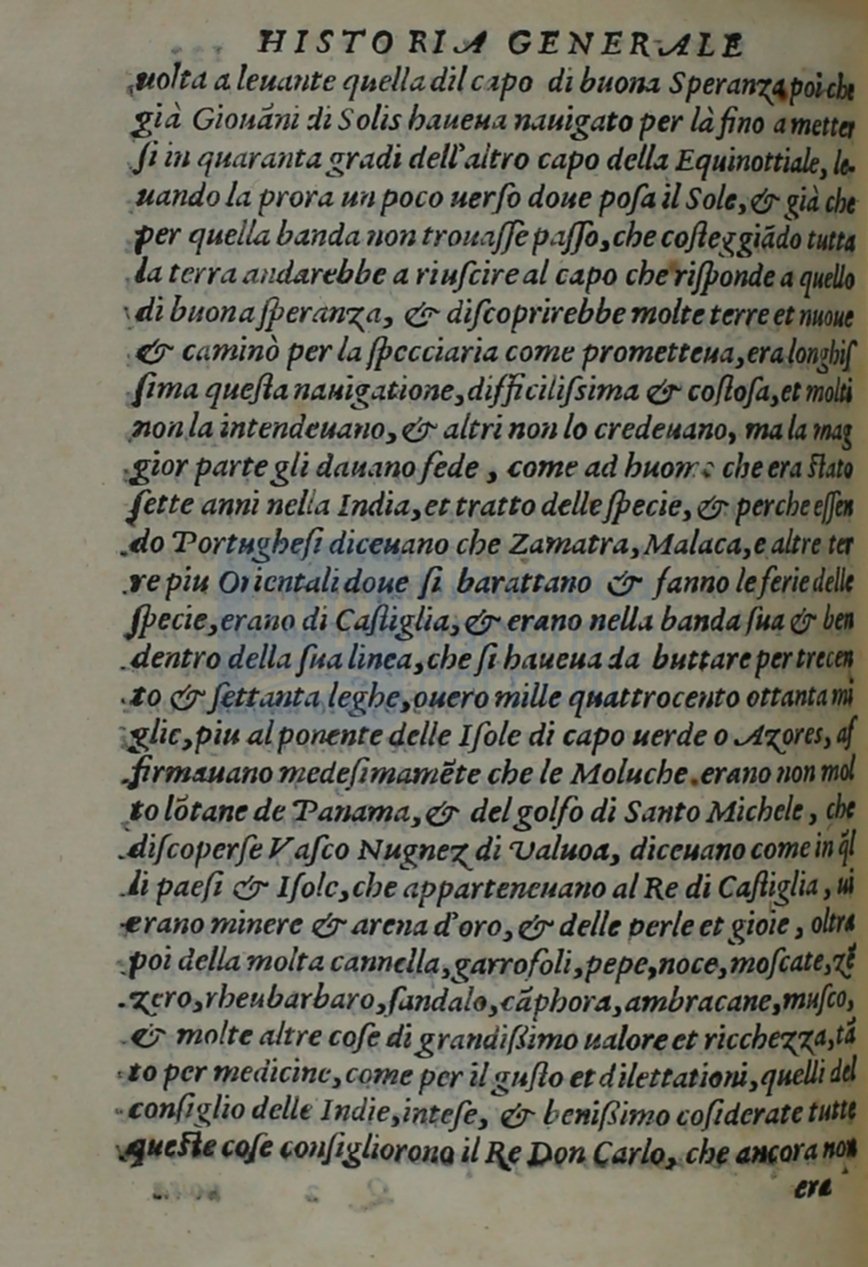 HISTORIA GENERALE
uolta a leuante quella dil capo di buona Speranza poi che
già Giouãni di Solis haueua nauigato per là fino a metter
ſi in quaranta gradi dell'altro capo della Equinottiale, le-
uando la prora un poco uerſo doue poſa il Sole, & già che
per quella banda non trouaſſe paſſo, che coſteggiãdo tutta
la terra andarebbe a riuſcire al capo che riſponde a quello
di buona ſperanza, & diſcoprirebbe molte terre et nuoue
& caminò per la ſpecciaria come prometteua, era longhiſ
ſima queſta nauigatione, difficiliſsima & coſtoſa, et molti
non la intendeuano, & altri non lo credeuano, ma la mag
gior parte gli dauano fede, come ad huomo che era ſtato
ſette anni nella India, et tratto delle ſpecie, & perche eſſen
do Portugheſi diceuano che Zamatra, Malaca, e altre ter
re piu Orientali doue ſi barattano & fanno le ferie delle
ſpecie, erano di Caſtiglia, & erano nella banda ſua & ben
dentro della ſua linea, che ſi haueua da buttare per trecen
to & ſettanta leghe, ouero mille quattrocento ottanta mi
glie, piu al ponente delle Iſole di capo uerde o Azores, af
firmauano medeſimamẽte che le Moluche erano non mol
to lõtane de Panama, & del golfo di Santo Michele, che
diſcoperſe Vaſco Nugnez di Valuoa, diceuano come in q̃l
li paeſi & Iſole, che apparteneuano al Re di Caſtiglia, ui
erano minere & arena d'oro, & delle perle et gioie, oltra
poi della molta cannella, garrofoli, pepe, noce, moſcate, zẽ
zero, rheubarbaro, ſandalo, cãphora, ambracane, muſco,
& molte altre coſe di grandiſsimo ualore et ricchezza, tã
to per medicine, come per il guſto et dilettationi, quelli del
conſiglio delle Indie, inteſe, & beniſsimo coſiderate tutte
queſte coſe conſigliorono il Re Don Carlo, che ancora non
era